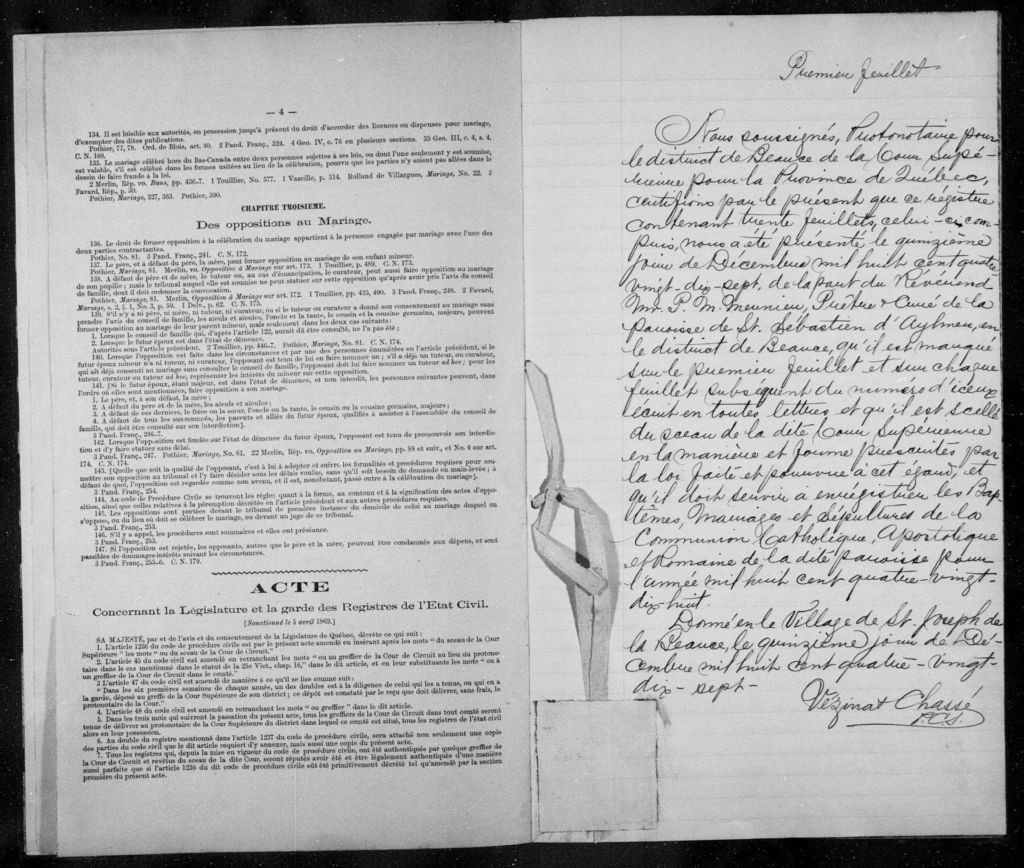 — 4 —
134. Il est loisible aux autorités, en possession jusqu'à présent du droit d'accorder des licences ou dispenses pour mariage,
d'exempter des dites publications.
Pothier, 77, 78. Ord. de Blois, art. 40. 2 Pand. Franç., 324. 4 Geo. IV, c. 76 en plusieurs sections. 35 Geo. III, c. 4, s. 4.
C. N. 169.
135. Le mariage célébré hors du Bas-Canada entre deux personnes sujettes à ses lois, ou dont l'une seulement y est soumise,
est valable, s'il est célébré dans les formes usitées au lieu de la célébration, pourvu que les parties n'y soient pas allées dans le
dessin de faire fraude à la loi.
2 Merlin, Rép. vo. Bans, pp. 436-7. 1 Touillier, No. 577. 1 Vazeille, p. 314. Rolland de Villargues, Mariage, No. 22. 3
Favard, Rép., p. 30.
Pothier, Mariage, 327, 363. Pothier, 390.
CHAPITRE TROISIEME.
Des oppositions au Mariage.
136. Le droit de former opposition à la célébration du mariage appartient à la personne engagée par mariage avec l'une des
deux parties contractantes.
Pothier, No. 81. 3 Pand. Franç., 241. C. N. 172.
137. Le père, et à défaut du père, la mère, peut former opposition au mariage de son enfant mineur.
Pothier, Mariage, 81. Merlin, vo. Opposition à Mariage sur art. 173. 1 Touillier, p. 489. C. N. 173.
138. A défaut de père et de mère, le tuteur ou, au cas d'émancipation, le curateur, peut aussi faire opposition au mariage
de son pupille; mais le tribunal auquel elle est soumise ne peut statuer sur cette opposition qu'après avoir pris l'avis du conseil
de famille, dont il doit ordonner la convocation.
Pothier, Mariage, 81. Merlin, Opposition à Mariage sur art. 172. 1 Touillier, pp. 425, 490. 3 Pand. Franç., 248. 2 Favard,
Mariage, s. 2, § 1, No. 3, p. 59. 1 Delv., p. 62. C. N. 175.
139. S'il n'y a ni père, ni mère, ni tuteur, ni curateur, ou si le tuteur ou curateur a donné son consentement au mariage sans
prendre l'avis du conseil de famille, les aïeuls et aïeules, l'oncle et la tante, le cousin et la cousine germains, majeurs, peuvent
former opposition au mariage de leur parent mineur, mais seulement dans les deux cas suivants:
1. Lorsque le conseil de famille qui, d'après l'article 122, aurait dû être consulté, ne l'a pas été;
2. Lorsque le futur époux est dans l'état de démence.
Autorités sous l'article précédent. 2 Touillier, pp. 446-7. Pothier, Mariage, No. 81. C. N. 174.
140. Lorsque l'opposition est faite dans les circonstances et par une des personnes énumérées en l'article précédent, si le
futur époux mineur n'a ni tuteur, ni curateur, l'opposant est tenu de lui en faire nommer un; s'il a déjà un tuteur, ou curateur,
qui ait déjà consenti au mariage sans consulter le conseil de famille, l'opposant doit lui faire nommer un tuteur ad hoc; pour les
tuteur, curateur ou tuteur ad hoc, représenter les intérêts du mineur sur cette opposition.
141. [Si le futur époux, étant majeur, est dans l'état de démence, et non interdit, les personnes suivantes peuvent, dans
l'ordre où elles sont mentionnées, faire opposition à son mariage.
1. Le père, et, à son défaut, la mère;
2. A défaut du père et de la mère, les aïeuls et aïeules;
3. A défaut de ces derniers, le frère ou la sœur, l'oncle ou la tante, le cousin ou la cousine germains, majeurs;
4. A défaut de tous les sus-nommés, les parents et alliés du futur époux, qualifiés à assister à l'assemblée du conseil de
famille, qui doit être consulté sur son interdiction].
3 Pand. Franç., 246-7.
142. Lorsque l'opposition est fondée sur l'état de démence du futur époux, l'opposant est tenu de promouvoir son interdic-
tion et d'y faire statuer sans délai.
3 Pand. Franç., 247. Pothier, Mariage, No. 81. 22 Merlin, Rép. vo. Opposition au Mariage, pp. 88 et suiv., et No. 4 sur art.
174. C. N. 174.
143. [Quelle que soit la qualité de l'opposant, c'est à lui à adopter et suivre les formalités et procédures requises pour sou-
mettre son opposition au tribunal et l'y faire décider sous les délais voulus, sans qu'il soit besoin de demande en main-levée; à
défaut de quoi, l'opposition est regardée comme non avenu, et il est, nonobstant, passé outre à la célébration du mariage].
3 Pand. Franç., 254.
144. Au code de Procédure Civile se trouvent les règles quant à la forme, au contenu et à la signification des actes d'oppo-
sition, ainsi que celles relatives à la péremption décrétée en l'article précédent et aux autres procédures requises.
145. Les oppositions sont portées devant le tribunal de première instance du domicile de celui au mariage duquel on
s'oppose, ou du lieu où doit se célébrer le mariage, ou devant un juge de ce tribunal.
3 Pand. Franç., 253.
146. S'il y a appel, les procédures sont sommaires et elles ont préséance.
3 Pand. Franç., 253.
147. Si l'opposition est rejetée, les opposants, autres que le père et la mère, peuvent être condamnés aux dépens, et sont
passibles de dommages-intérêts suivant les circonstances.
3 Pand. Franç., 255-6. C. N. 179.
ACTE
Concernant la Législature et la garde des Registres de l'Etat Civil.
[Sanctionné le 5 avril 1869.]
SA MAJESTÉ, par et de l'avis et du consentement de la Législature de Québec, décrète ce qui suit:
1. L'article 1236 du code de procédure civile est par le présent acte amendé en insérant après les mots " du sceau de la Cour
Supérieure " les mots " ou du sceau de la Cour de Circuit."
2. L'article 45 du code civil est amendé en retranchant les mots " ou au greffier de la Cour de Circuit au lieu du protono-
taire dans le cas mentionné dans le statut de la 25e Vict., chap. 16," dans le dit article, et en leur substituants les mots " ou à
un greffier de la Cour de Circuit dans le comté."
3 L'article 47 du code civil est amendé de manière à ce qu'il se lise comme suit:
" Dans les six premières semaines de chaque année, un des doubles est à la diligence de celui qui les a tenus, ou qui en a
la garde, déposé au greffe de la Cour Supérieure de son district; ce dépôt est constaté par le reçu que doit délivrer, sans frais, le
protonotaire de la Cour."
4. L'article 48 du code civil est amendé en retranchant les mots " ou greffier " dans le dit article.
5. Dans les trois mois qui suivront la passation du présent acte, tous les greffiers de la Cour de Circuit dans tout comté seront
tenus de délivrer au protonotaire de la Cour Supérieure du district dans lequel ce comté est situé, tous les registres de l'état civil
alors en leur possession.
6. Au double du registre mentionné dans l'article 1237 du code de procédure civile, sera attaché non seulement une copie
des parties du code civil que le dit article requiert d'y annexer, mais aussi une copie du présent acte.
7. Tous les registres qui, depuis la mise en vigueur du code de procédure civile, ont été authentiqués par quelque greffier de
la Cour de Circuit et revêtus du sceau de la dite Cour, seront réputés avoir été et être légalement authentiqués d'une manière
aussi parfaite que si l'article 1236 du dit code de procédure civile eût été primitivement décrété tel qu'amendé par la section
première du présent acte.
Premier feuillet
Nous soussignés, Protonotaire pour
le district de Beauce de la Cour Supé-
rieure pour la Province de Québec,
certifions par le présent que ce régistre
contenant trente feuillets, celui-ci com-
pris, nous a été présenté le quinzième
jour de Décembre mil huit cent quatre
vingt-dix-sept, de la part du Révérend
Mr. P. M. Meunier, Prêtre & Curé de la
paroisse de St. Sébastien d'Aylmer, en
le district de Beauce, qu'il est marqué
sur le premier feuillet et sur chaque
feuillet subséquent du numéro d'iceux
écrit en toutes lettres et qu'il est scellé
du sceau de la dite Cour Supérieure
en la manière et forme prescrites par
la loi faite et pourvue à cet égard, et
qu'il doit servir à enrégistrer les Bap-
têmes, Mariages et Sépultures de la
Communion Catholique, Apostolique
et Romaine de la dite paroisse pour
l'année mil huit cent quatre-vingt-
dix huit.
Donné en le Village de St. Joseph de
la Beauce, le quinzième jour de Dé-
cembre mil huit cent quatre-vingt-
dix-sept-
Vézina & Chassé
P.C.S.